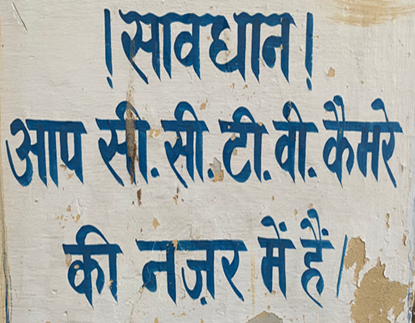 !सावधान!
आप सी.सी.टी.वी. कैमरे
की नज़र में हैं/